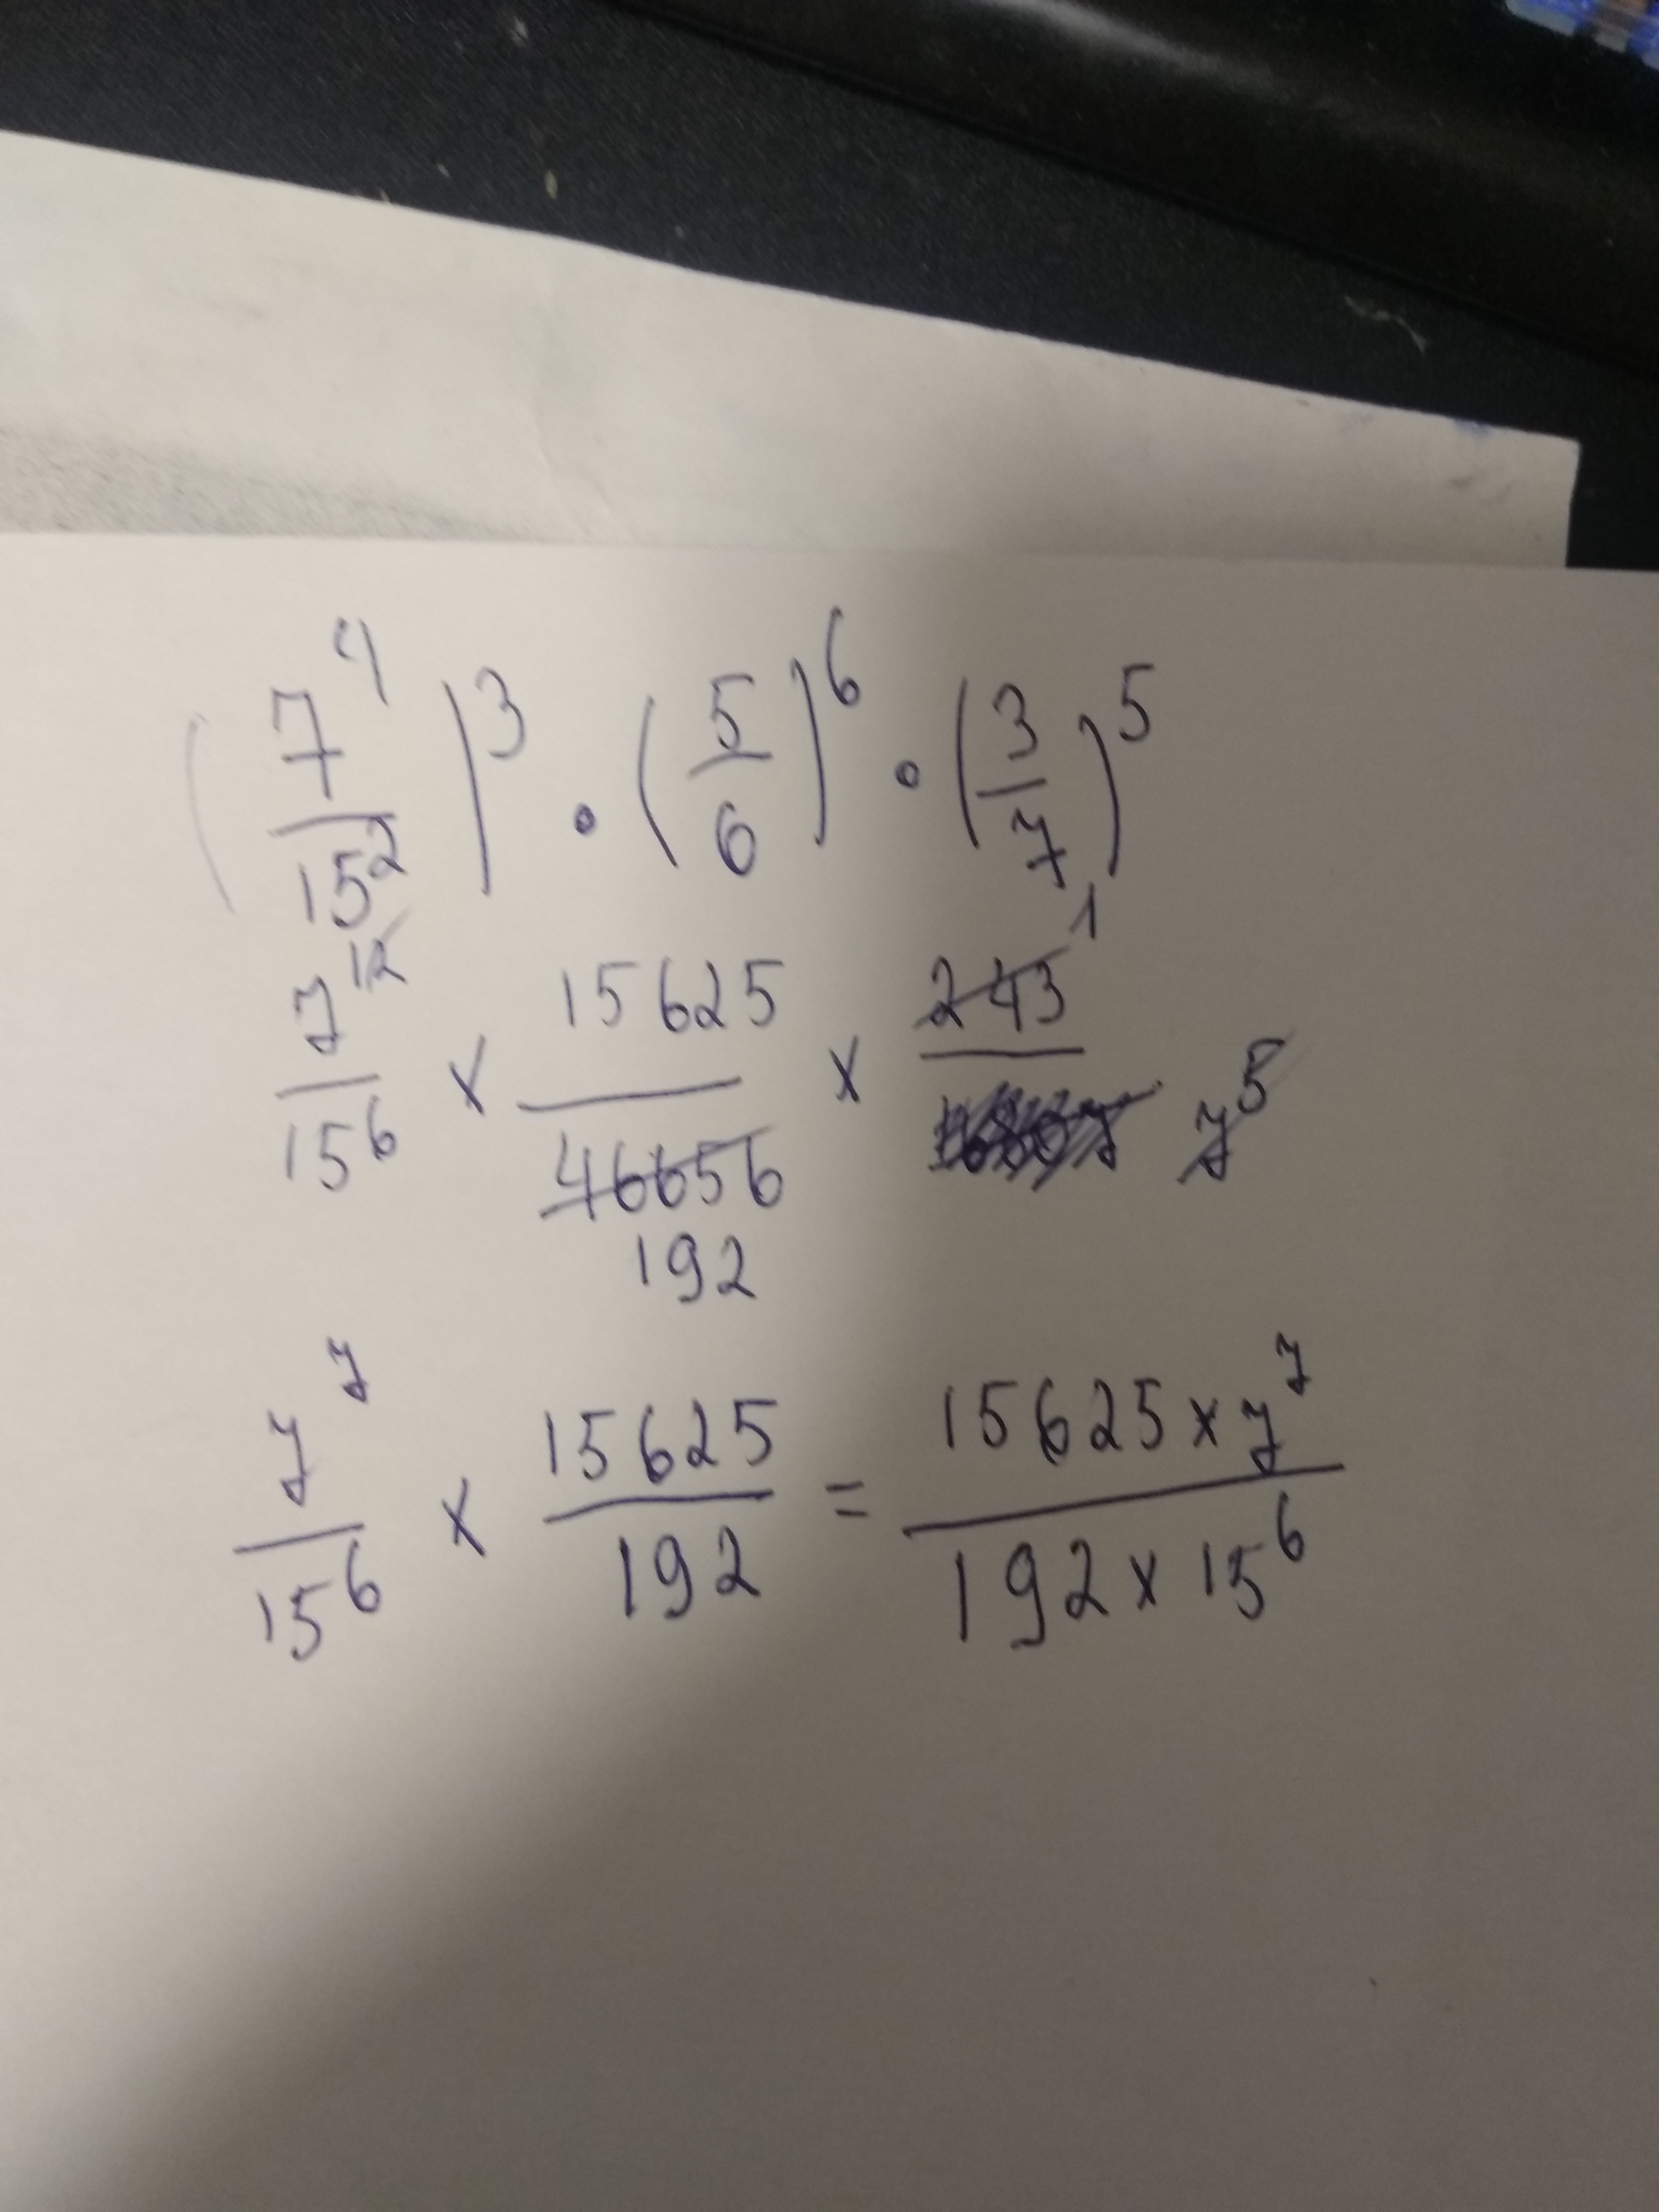 (7^4/15^2)^3 · (5/6)^6 · (3/7)^5
7^12/15^6 × 15625/46656 192 × 243 1/16807 7^5
7^7/15^6 × 15625/192 = 15625×7^7/192×15^6